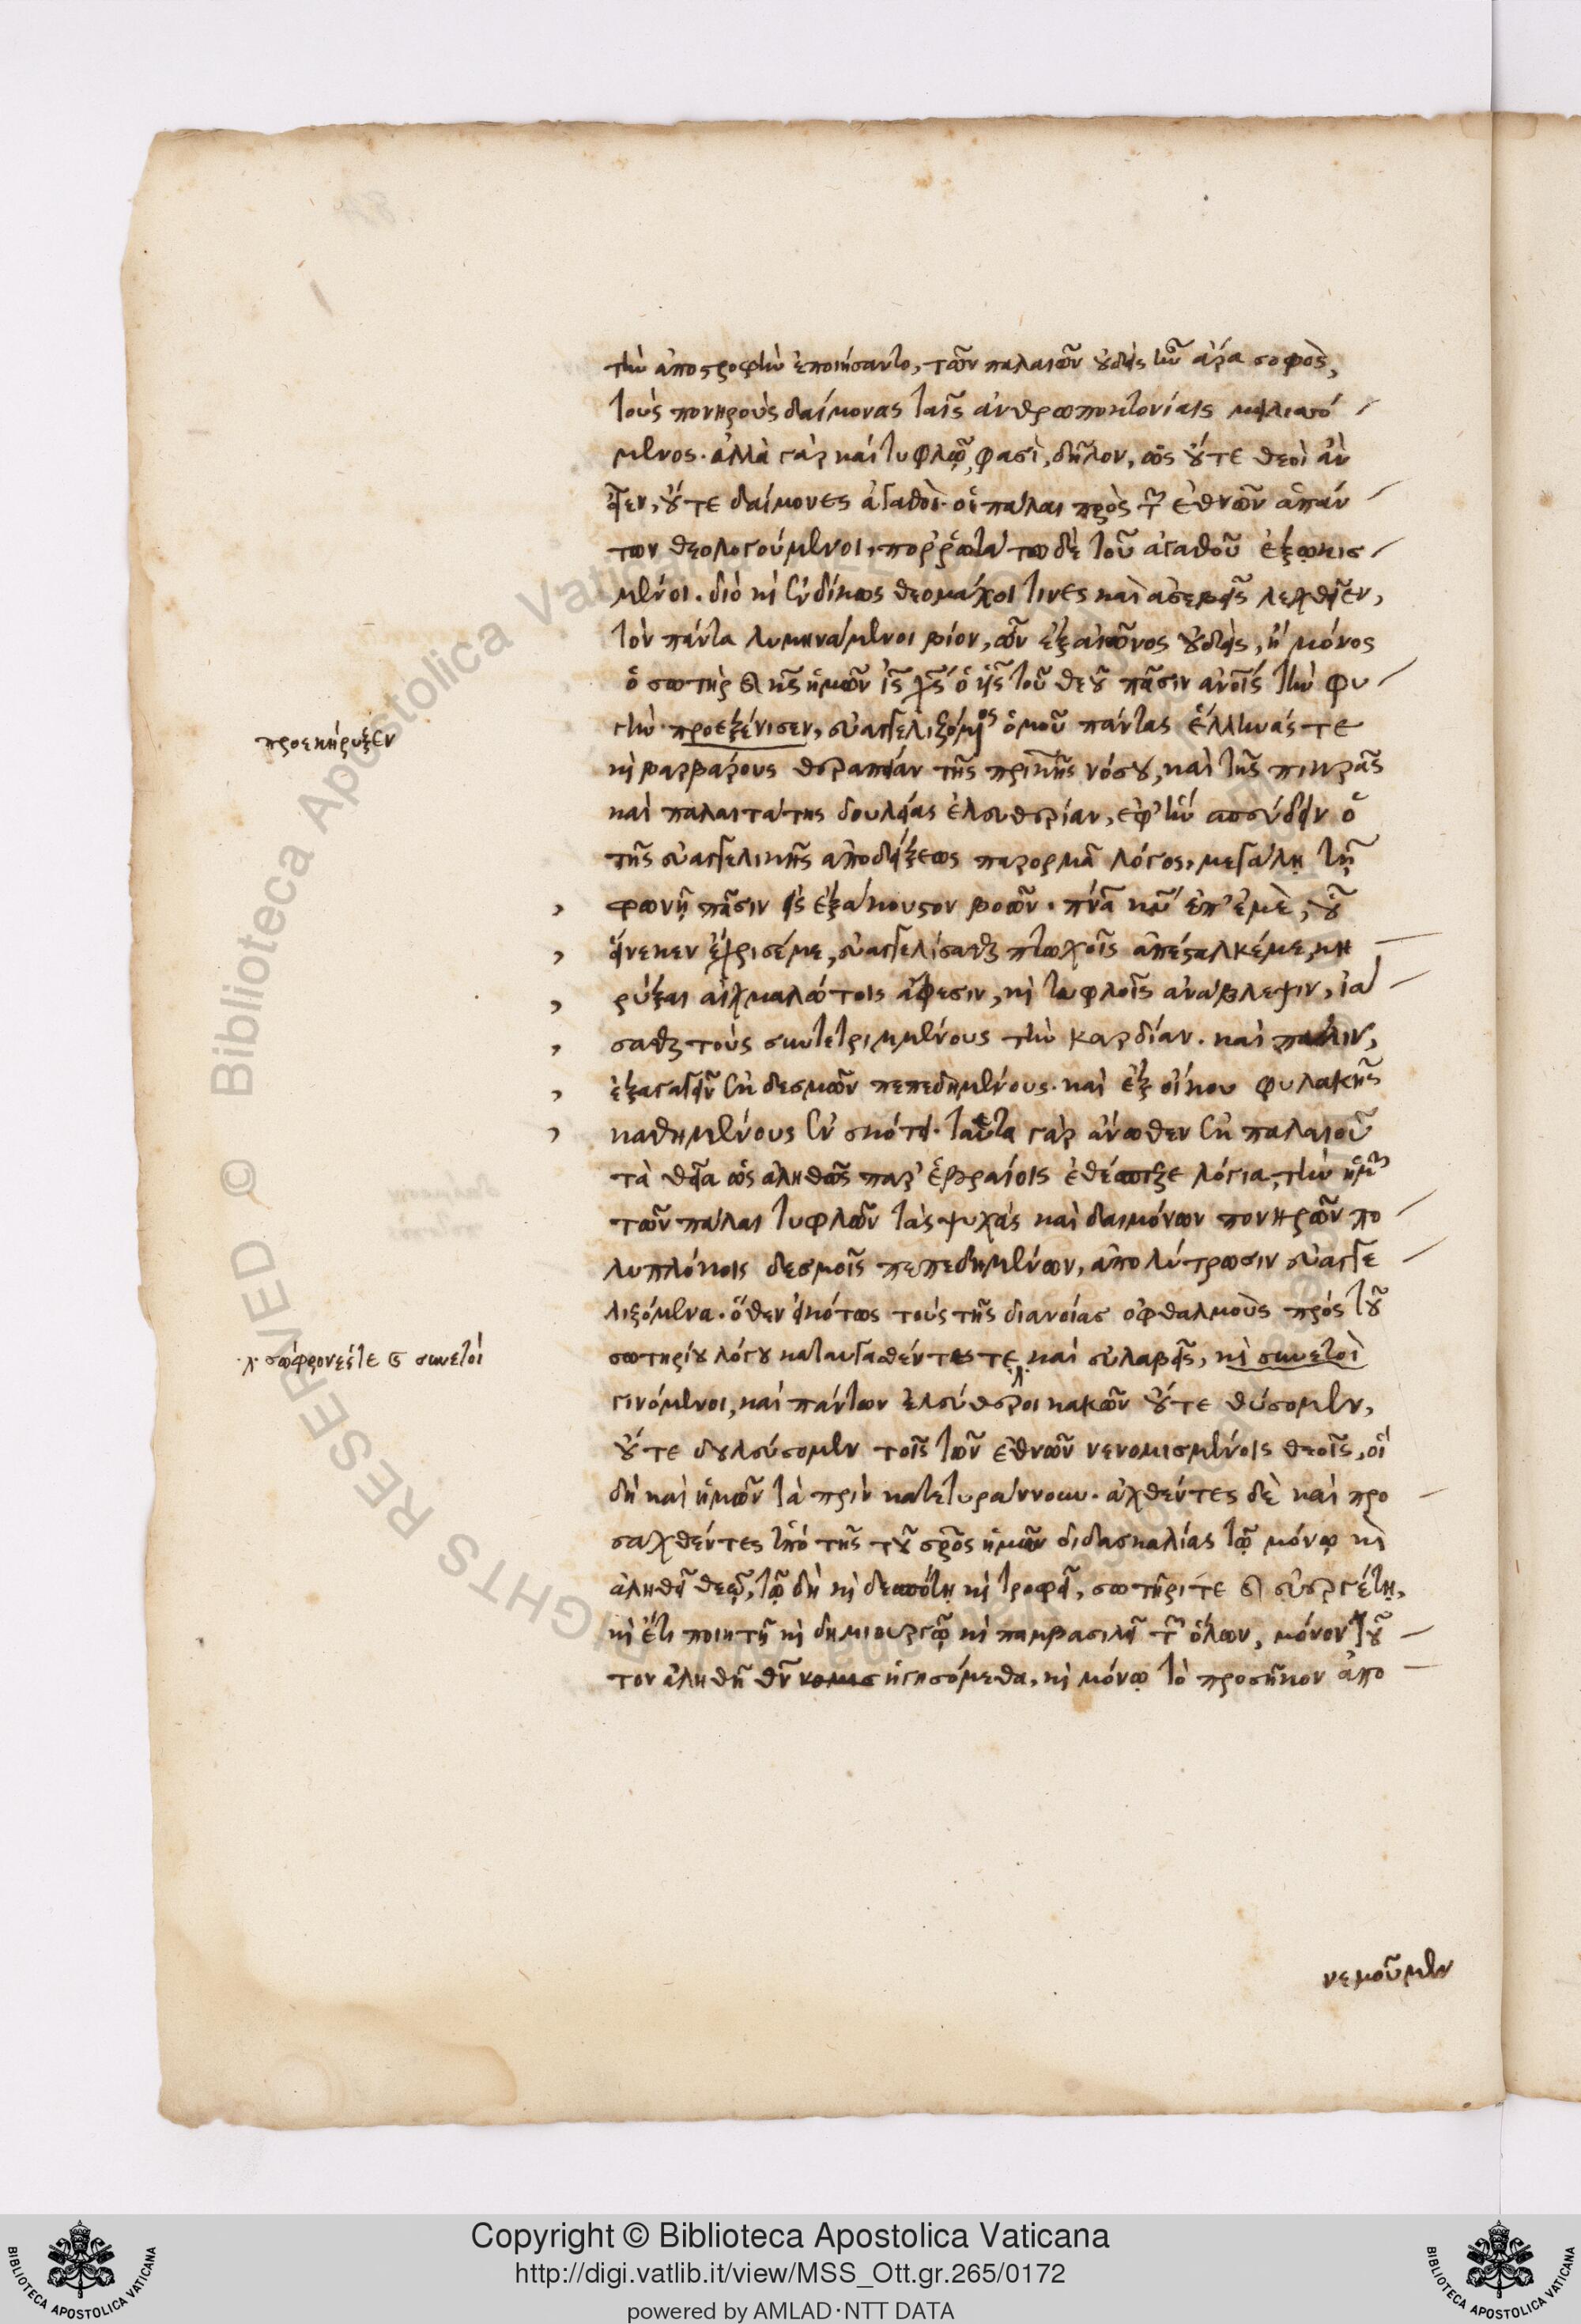 τὴν ἀποστροφὴν ἐποιήσαντο, τῶν παλαιῶν οὐδεὶς ἦν ἄρα σοφὸς,
τοὺς πονηροὺς δαίμονας ταῖς ἀνθρωποκτονίαις μειλισσό
μενος. ἀλλὰ γὰρ καὶ τυφλῷ, φασὶ, δῆλον, ὡς οὔτε θεοὶ ἂν
εἶεν, οὔτε δαίμονες ἀγαθοὶ οἱ πάλαι πρὸς τῶν ἐθνῶν ἁπάν
των θεολογούμενοι, πορρωτάτω δὲ τοῦ ἀγαθοῦ ἐξῳκισ
μένοι. διὸ καὶ ἐνδίκως θεομάχοι τινες καὶ ἀσεβεῖς λεχθεῖεν,
τὸν πάντα λυμηνάμενοι βίον, ὧν ἐξ αἰῶνος οὐδεὶς, ἢ μόνος
ὁ σωτὴρ καὶ κς ἡμῶν ις χς ὁ υς τοῦ θεοῦ πᾶσιν ανοις τὴν φυ
γὴν προεξένισεν, εὐαγγελιζόμενος ὁμοῦ πάντας ἕλληνάς τε
προεκήρυξεν
καὶ βαρβάρους θεραπείαν τῆς πρικῆς νόσου, καὶ τῆς πικρᾶς
καὶ παλαιτάτης δουλείας ἐλευθερίαν, ἐφ' ἣν σπεύδειν ὁ
τῆς εὐαγγελικῆς ἀποδείξεως παρορμᾷ λόγος, μεγάλῃ τῇ
φωνῇ πᾶσιν εἰς ἐξάκουστον βοῶν. πνα κυ ἐπ' ἐμὲ, οὗ
εἵνεκεν ἔχρισέ με, εὐαγγελίσασθαι πτωχοῖς ἀπέσταλκέ με, κη
ρύξαι αἰχμαλώτοις ἄφεσιν, καὶ τυφλοῖς ἀνάβλεψιν, ἰά
σασθαι τοὺς συντετριμμένους τὴν καρδίαν. καὶ πάλιν,
ἐξαγαγεῖν ἐκ δεσμῶν πεπεδημένους. καὶ ἐξ οἴκου φυλακῆς
καθημένους ἐν σκότει. ταῦτα γὰρ ἄνωθεν ἐκ παλαιοῦ
τὰ θεῖα ὡς ἀληθῶς παρ' ἑβραίοις ἐθέσπιζε λόγια, τὴν ἡμῶν
τῶν πάλαι τυφλῶν τὰς ψυχὰς καὶ δαιμόνων πονηρῶν πο
λυπλόκοις δεσμοῖς πεπεδημένων, ἀπολύτρωσιν εὐαγγε
λιζόμενα. ὅθεν εἰκότως τοὺς τῆς διανοίας ὀφθαλμοὺς πρὸς τοῦ
σωτηρίου λόγου καταυγασθέντες τε, καὶ εὐλαβεῖς, καὶ συνετοὶ
γ. σώφρονές τε καὶ συνετοὶ
γινόμενοι, καὶ πάντων ἐλεύθεροι κακῶν οὔτε θύσομεν,
οὔτε δουλεύσομεν τοῖς τῶν ἐθνῶν νενομισμένοις θεοῖς, οἳ
δὴ καὶ ἡμῶν τὰ πρὶν κατετυράννουν. ἀχθέντες δὲ καὶ προ
σαχθέντες ὑπὸ τῆς τοῦ σρος ἡμῶν διδασκαλίας τῷ μόνῳ καὶ
ἀληθεῖ θεῷ, τῷ δὴ καὶ δεσπότῃ καὶ τροφεῖ, σωτῆρί τε καὶ εὐεργέτῃ,
καὶ ἔτι ποιητῇ καὶ δημιουργῷ καὶ παμβασιλεῖ τῶν ὅλων, μόνον τοῦ
τον ἀληθῆ θν νομισ ἡγησόμεθα, καὶ μόνῳ τὸ προσῆκον ἀπο
νεμοῦμεν
Copyright © Biblioteca Apostolica Vaticana
http://digi.vatlib.it/view/MSS_Ott.gr.265/0172
powered by AMLAD·NTT DATA